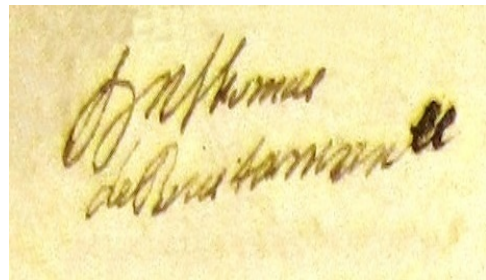 Dn Thomas
de Bustamante